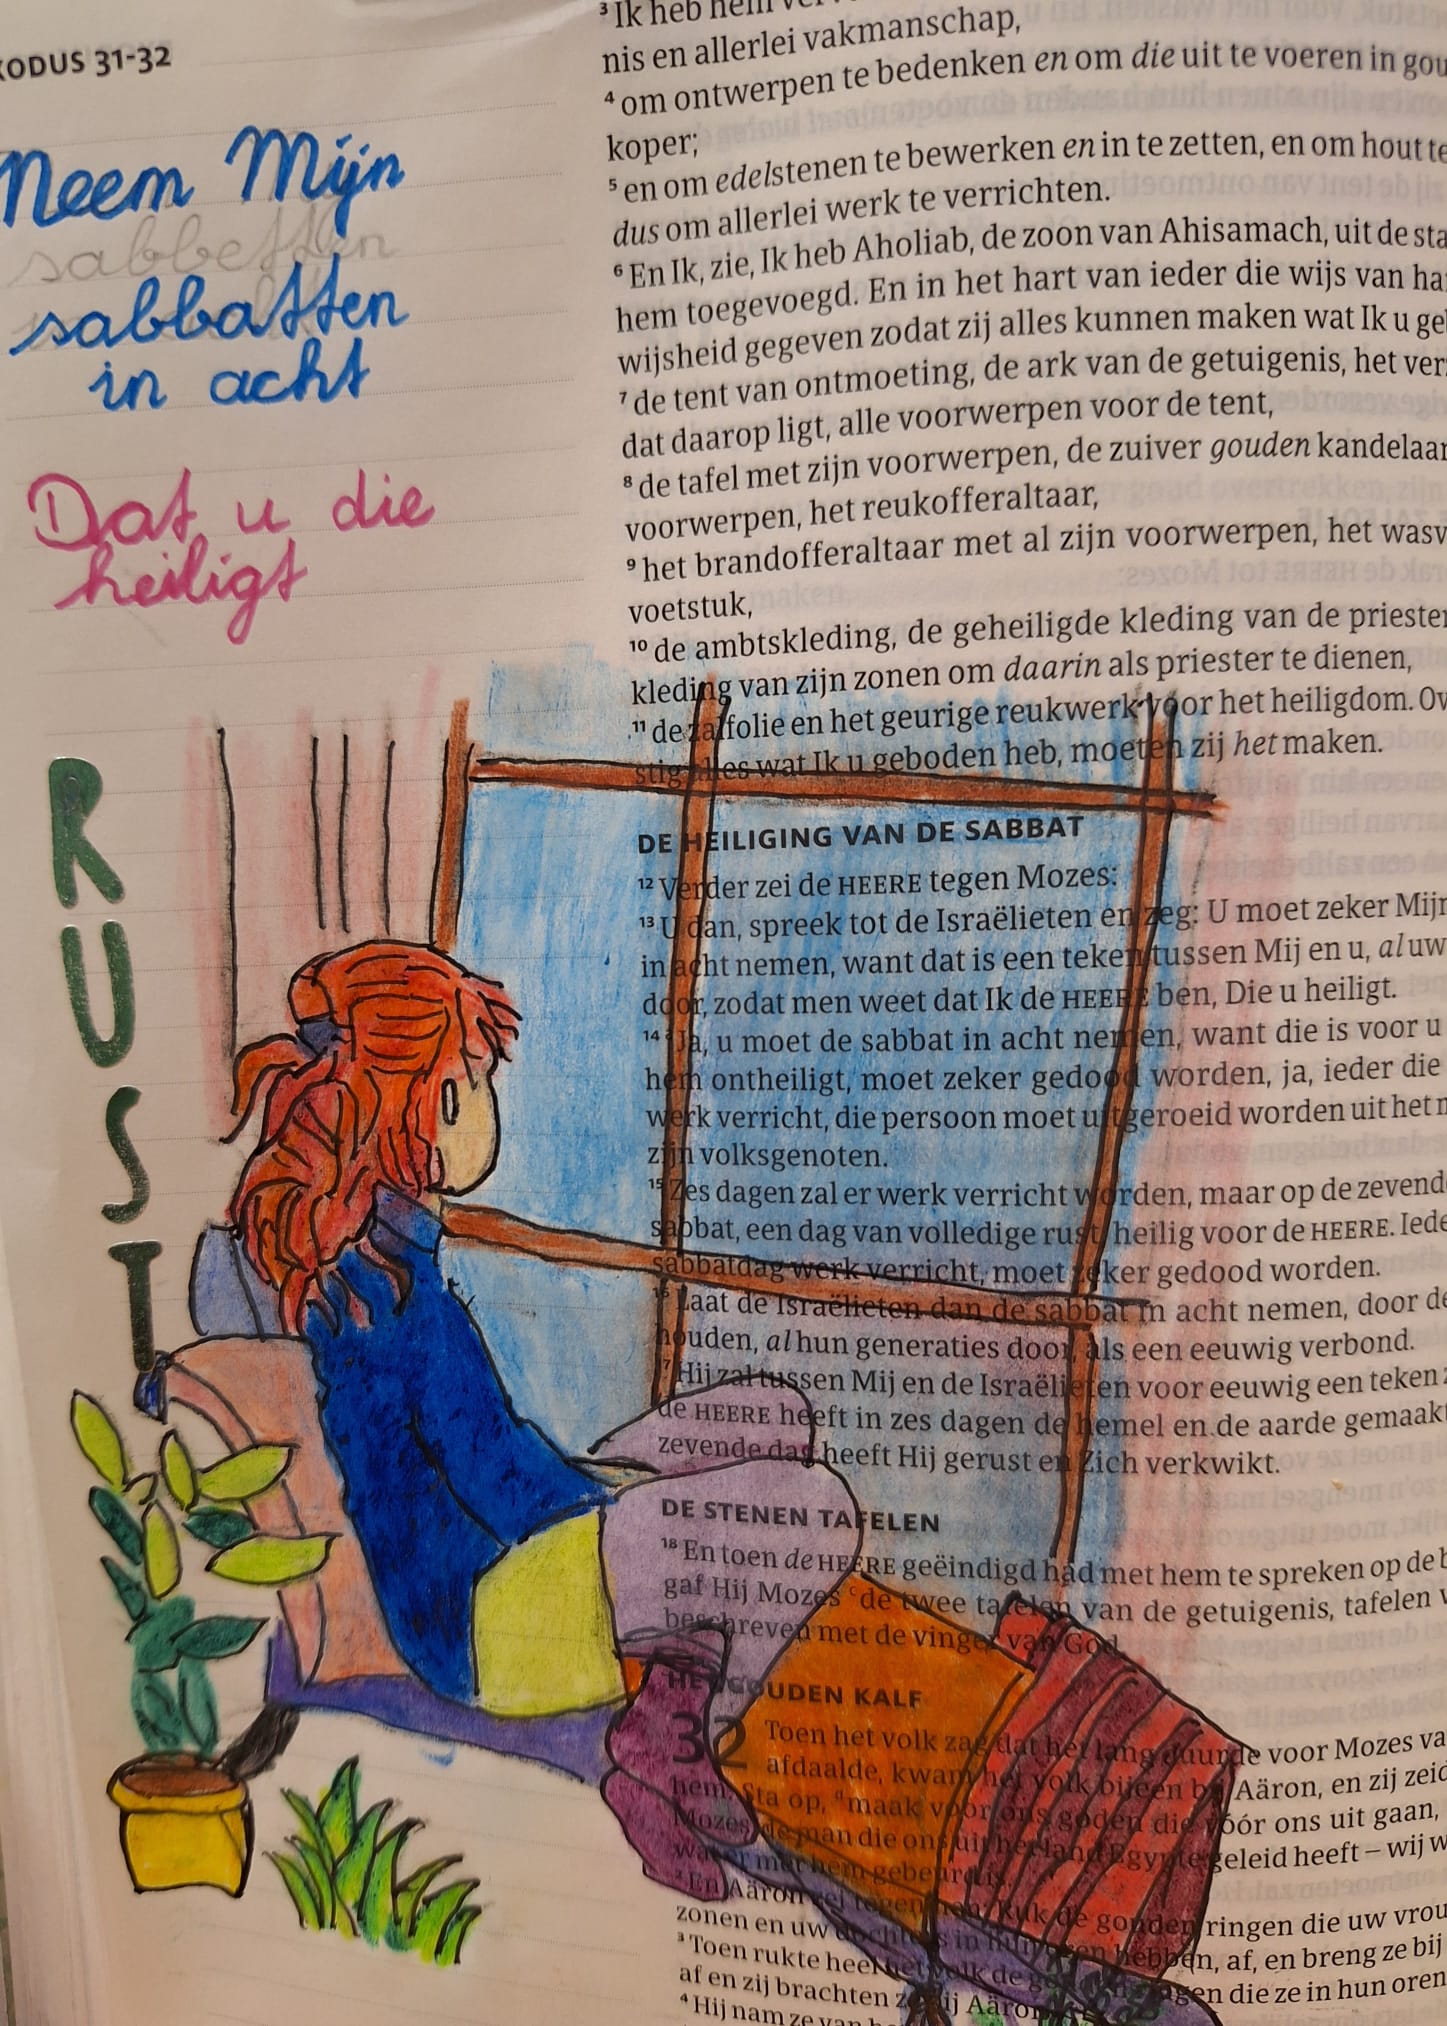 EXODUS 31-32
Neem Mijn
sabbetten
sabbatten
in acht
Dat u die
heiligt
RUST
³ Ik heb hem
nis en allerlei vakmanschap,
⁴ om ontwerpen te bedenken en om die uit te voeren in
koper;
⁵ en om edelstenen te bewerken en in te zetten, en om hout te
dus om allerlei werk te verrichten.
⁶ En Ik, zie, Ik heb Aholiab, de zoon van Ahisamach, uit de
hem toegevoegd. En in het hart van ieder die wijs van
wijsheid gegeven zodat zij alles kunnen maken wat Ik u
⁷ de tent van ontmoeting, de ark van de getuigenis, het
dat daarop ligt, alle voorwerpen voor de tent,
⁸ de tafel met zijn voorwerpen, de zuiver gouden kandelaar
voorwerpen, het reukofferaltaar,
⁹ het brandofferaltaar met al zijn voorwerpen, het
voetstuk,
¹⁰ de ambtskleding, de geheiligde kleding van de
kleding van zijn zonen om daarin als priester te dienen,
¹¹ de zalfolie en het geurige reukwerk voor het heiligdom.
stig alles wat Ik u geboden heb, moeten zij het maken.
DE HEILIGING VAN DE SABBAT
¹² Verder zei de HEERE tegen Mozes:
¹³ U dan, spreek tot de Israëlieten en zeg: U moet zeker Mijn
in acht nemen, want dat is een teken tussen Mij en u, al uw
door, zodat men weet dat Ik de HEERE ben, Die u heiligt.
¹⁴ Ja, u moet de sabbat in acht nemen, want die is voor u
hem ontheiligt, moet zeker gedood worden, ja, ieder die
werk verricht, die persoon moet uitgeroeid worden uit het
zijn volksgenoten.
¹⁵ Zes dagen zal er werk verricht worden, maar op de
sabbat, een dag van volledige rust, heilig voor de HEERE.
sabbatdag werk verricht, moet zeker gedood worden.
¹⁶ Laat de Israëlieten dan de sabbat in acht nemen, door
houden, al hun generaties door, als een eeuwig verbond.
¹⁷ Hij zal tussen Mij en de Israëlieten voor eeuwig een teken
de HEERE heeft in zes dagen de hemel en de aarde gemaakt
zevende dag heeft Hij gerust en Zich verkwikt.
DE STENEN TAFELEN
¹⁸ En toen de HEERE geëindigd had met hem te spreken op de
gaf Hij Mozes ᶜde twee tafelen van de getuigenis, tafelen
beschreven met de vinger van God.
HET GOUDEN KALF
32 Toen het volk zag dat het lang duurde voor Mozes
afdaalde, kwam het volk bijeen bij Aäron, en zij
hem: Sta op, ᵃmaak voor ons goden die vóór ons uit gaan,
Mozes, de man die ons uit het land Egypte geleid heeft – wij
water met hem gebeurd is.
² En Aäron zei tegen hen: Ruk de gouden ringen die uw
zonen en uw dochters in hun oren hebben, af, en breng ze bij
³ Toen rukte heel het volk de gouden ringen die ze in hun oren
af en zij brachten ze bij Aäron
⁴ Hij nam ze van